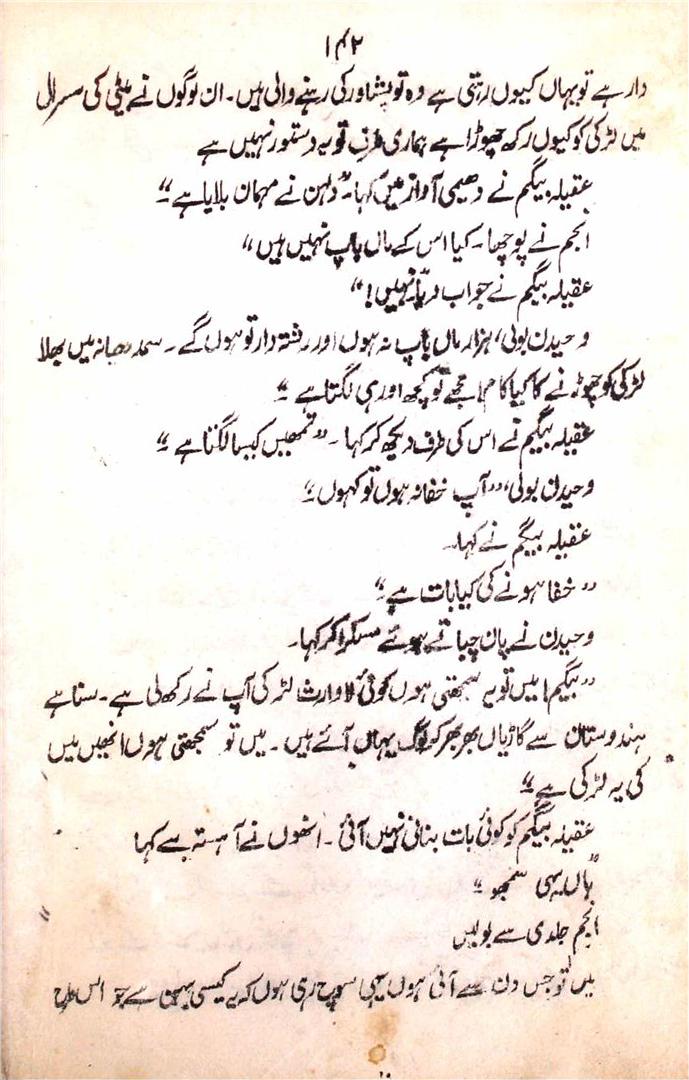 ۱۴۲
دار ہے تو یہاں کیوں رہتی ہے وہ تو پشاور کی رہنے والی ہیں۔ ان لوگوں نے بیٹی کی سسرال
میں لڑکی کو کیوں رکھ چھوڑا ہے ہماری طرف تو یہ دستور نہیں ہے
عقیلہ بیگم نے دھیمی آواز میں کہا۔ "دلہن نے مہمان بلایا ہے"
انجم نے پوچھا۔ کیا اس کے ماں باپ نہیں ہیں"
عقیلہ بیگم نے جواب دیا نہیں!"
وحیدن بولی، ہزار ماں باپ نہ ہوں اور رشتہ دار تو ہوں گے۔ سمدھیانہ میں بھلا
لڑکی کو چھوڑنے کا کیا کام! مجھے تو کچھ اور ہی لگتا ہے"
عقیلہ بیگم نے اس کی طرف دیکھ کر کہا۔ "تمھیں کیسا لگتا ہے"
وحیدن بولی، "آپ خفا نہ ہوں تو کہوں"
عقیلہ بیگم نے کہا۔
"خفا ہونے کی کیا بات ہے"
وحیدن نے پان چباتے ہوئے مسکرا کر کہا۔
"بیگم! میں تو یہ سمجھتی ہوں کوئی لاوارث لڑکی آپ نے رکھ لی ہے۔ سنا ہے
ہندوستان سے گاڑیاں بھر بھر کر لوگ یہاں آئے ہیں۔ میں تو سمجھتی ہوں انھیں میں
کی یہ لڑکی ہے"
عقیلہ بیگم کو کوئی بات بنانی نہیں آئی۔ انھوں نے آہستہ سے کہا
"ہاں یہی سمجھو"
انجم جلدی سے بولیں
میں تو جس دن سے آئی ہوں یہی سوچ رہی ہوں کہ یہ کیسی بہن ہے جو اس طرح